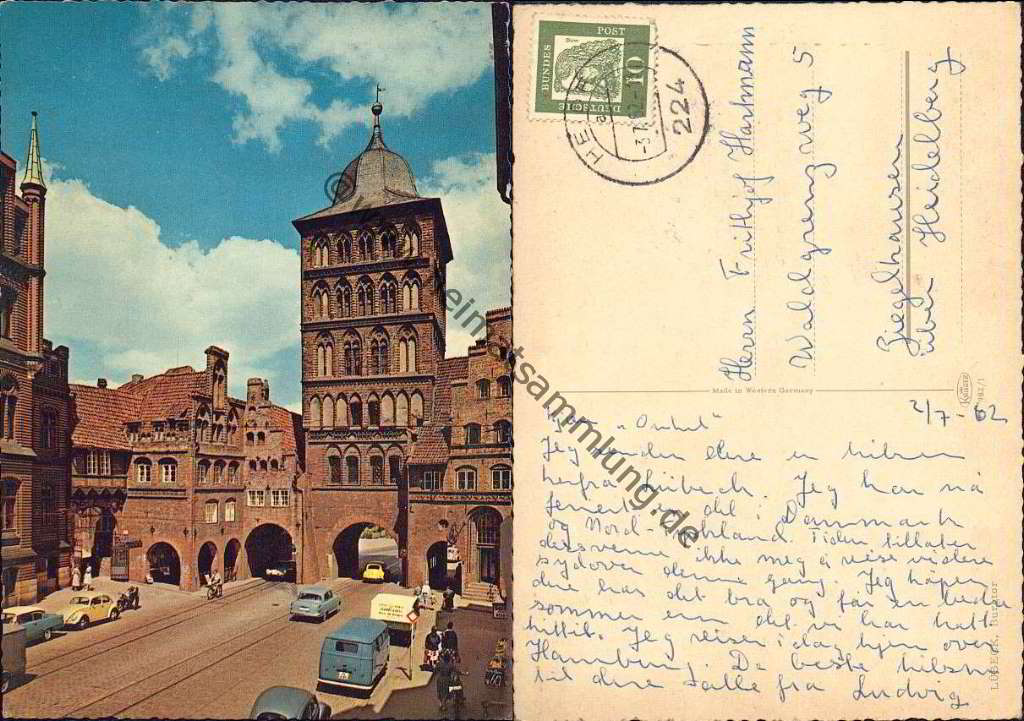 DEUTSCHE
BUNDES
POST
10
224
Herrn Frithjof Hartmann
Waldgrenzweg 5
Ziegelhausen
über Heidelberg
Made in Western Germany
2/7-62
"Onkel"
Jeg sender dere en hilsen
herfra Lübeck. Jeg har nå
feriert del i Danmark
og Nord-. Tiden tillater
dessverre ikke meg å reise videre
sydover denne gang. Jeg håper
dere har det bra og får en bedre
sommer enn det vi har hatt
hittil. Jeg reiser i dag hjem over
Hamburg. De beste hilsner
til dere alle fra Ludvig
LÜBECK, Burgtor
heimatsammlung.de